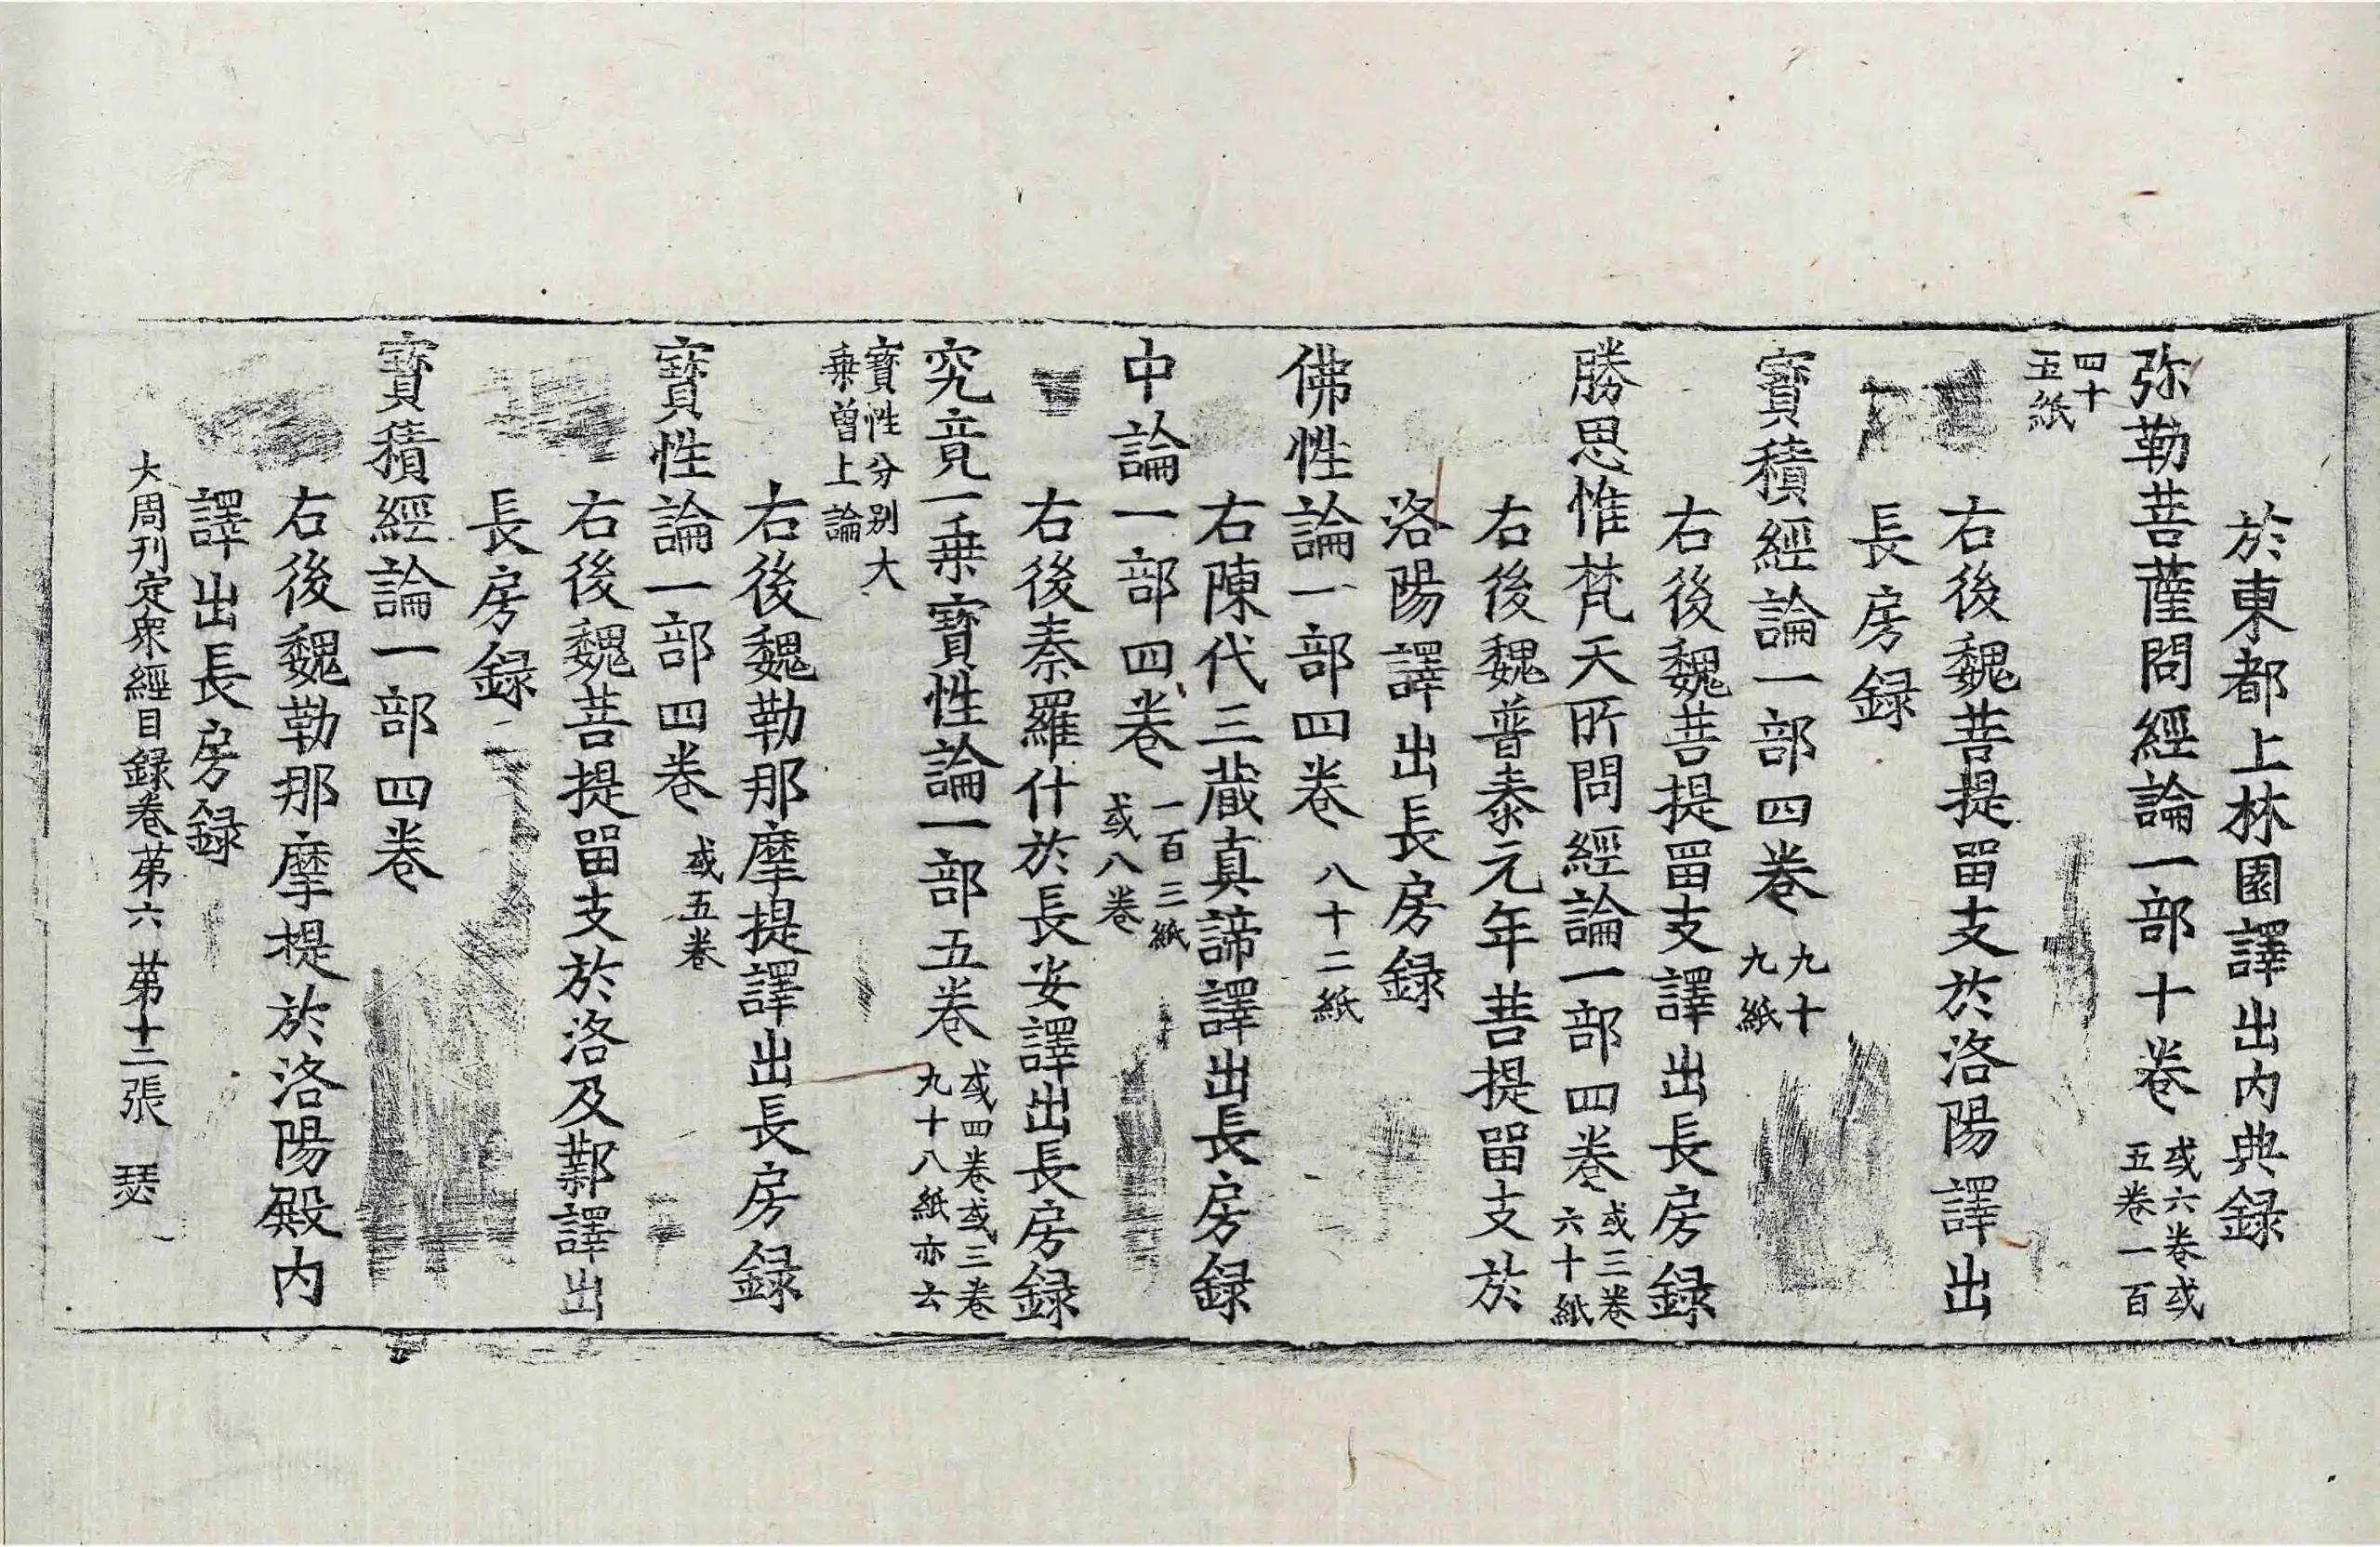 於東都上林園譯出内典録
弥勒菩薩問經論一部十卷 或六卷或五卷一百
四十五紙
右後魏菩提留支於洛陽譯出
長房録
寶積經論一部四卷 九十九紙
右後魏菩提留支譯出長房録
勝思惟梵天所問經論一部四卷 或三卷六十紙
右後魏普泰元年菩提留支於
洛陽譯出長房録
佛性論一部四卷 八十二紙
右陳代三藏真諦譯出長房録
中論一部四卷 一百三紙或八卷
右後秦羅什於長安譯出長房録
究竟一乗寶性論一部五卷 或四卷或三卷九十八紙亦云
寶性分别大乗曽上論
右後魏勒那摩提譯出長房録
寶性論一部四卷 或五卷
右後魏菩提留支於洛及鄴譯出
長房録
寶積經論一部四卷
右後魏勒那摩提於洛陽殿内
譯出長房録
大周刊定衆經目録卷苐六 苐十二張 瑟